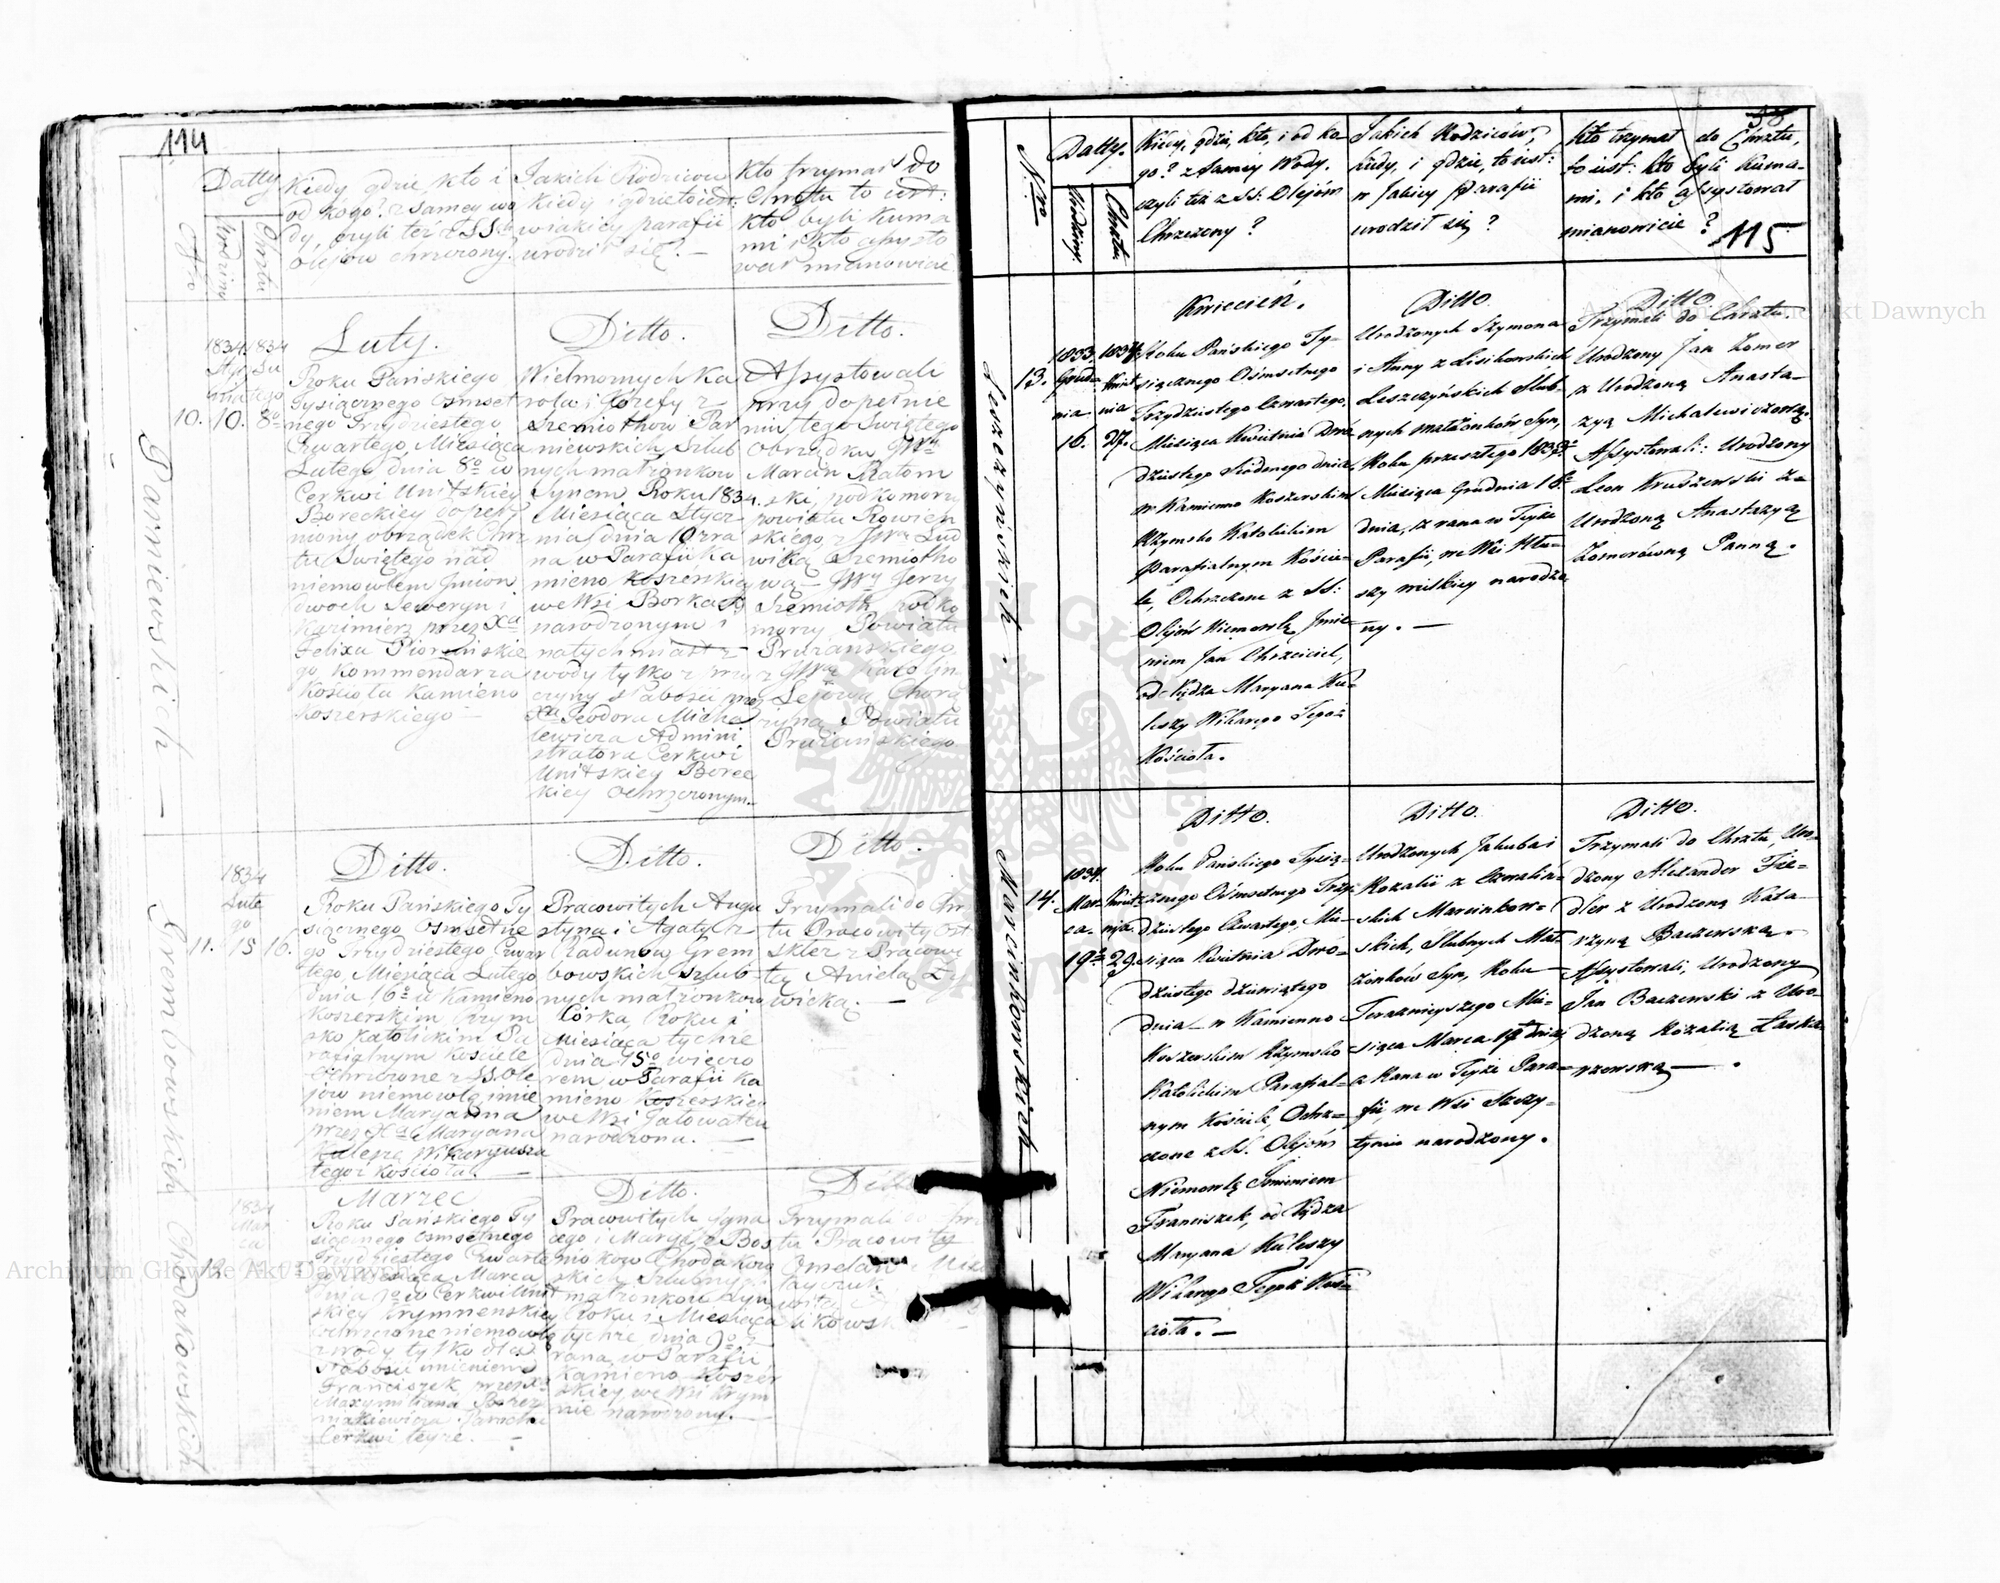 114
Datty
Kiedy gdzie kto i
od kogo? z samey wo
dy, czyli też z SS.
olejow chrzczony?
Jakich Rodzicow
kiedy i gdzie to iest:
w iakiey parafii
urodził się? —
Kto trzymał do
Chrztu to iest:
kto byli kuma
mi i kto assysto
wał mianowicie
Urodzin
Chrztu
Luty.
Ditto.
Ditto.
1834 1834
10. 10. 8º
Parniewskich —
Roku Pańskiego
Tysiącznego Osmset
nego Trzydziestego
Czwartego Miesiąca
Lutego dnia 8º w
Cerkwi Unitskiey
Boreckiey dopeł
niony obrządek Chrz
tu Swiętego nad
niemowlem Imion
dwoch Seweryn i
Kazimierz przez Xa
Felixa Piorunskie
go, kommendarza
Kościoła Kamieno
Koszerskiego —
Wielmożnych Ka
rola i Jozefy z
Szemiothow Par
niewskich Szlub
nych małżonkow
Synem Roku 1834.
Miesiąca Stycz
nia dnia 10 z ra
na w Parafii Ka
mieno Koszerskiey
we Wsi Borkach
narodzonym i
natychmiast z
wody tylko z przy
czyny słabości przez
Xa Teodora Micha
lewicza Admini
stratora Cerkwi
Unitskiey Borec
kiey ochrzczonym. —
Assystowali
przy dopełnie
niu tego Swiętego
obrządku JWny
Marcin Małom
ski, podkomorzy
powiatu Rowień
skiego, z JWną Lud
wiką Szemiotho
wą — JWny Jerzy
Szemioth podko
morzy Powiatu
Prużanskiego
z JWną Karolin
Lejową Chorą
żyną Powiatu
Prużańskiego
Ditto.
Ditto.
Ditto.
1834
Lute
go
11. 15 16.
Grembowskich
Roku Pańskiego Ty
siącznego Osmsetne
go Trzydziestego Czwar
tego, Miesiąca Lutego
dnia 16º w Kamieno
Koszerskim Rzym
sko katolickim Pa
rafialnym Kościele
Ochrzczone z SS. Ole
jow niemowlę imie
niem Maryanna
przez Xa Maryana
Kuleszę Wikaryusza
tegoż kościoła. —
Pracowitych Augu
styna i Agaty z
Radunow Grem
bowskich Szlub
nych małżonkow
Córka, Roku i
Miesiąca tychże
dnia 15º wieczo
rem w Parafii Ka
mieno Koszerskiey
we Wsi Jałowatcu
narodzona. —
Trzymali do Chrz
tu Pracowity
z Pracowi
tą Anielą
wicką. —
Marzec
Ditto.
Ditto
1834
Mar
ca
12.
Chodakowskich
Roku Pańskiego Ty
siącznego Osmsetnego
Trzydziestego Czwarte
go Miesiąca Marca
dnia 9º w Cerkwi Unit
skiey Krymnenskiey
Ochrzczone niemowlę
z wody tylko dla
słabosci imieniem
Franciszek, przez Xa
Maxymiliana
Parocha
Cerkwi teyże. —
Pracowitych Igna
cego i Maryi z Bos
niakow Chodakow
skich Szlubnych
małżonkow Syn
Roku i Miesiąca
tychże dnia 9º z
rana, w Parafii
Kamieno Koszer
skiey we Wsi Krym
nie narodzony. —
Trzymali do Chrz
tu Pracowity
Omelan
38
Nro
Datty.
Urodziny.
Chrztu.
Kiedy, gdzie, kto, i od ko=
go? z samey Wody,
czyli też z SS: Olejów
Chrzczony?
Jakich Rodziców,
kiedy, i gdzie, to iest:
w jakiey Parafii
urodził się?
Kto trzymał do Chrztu,
to iest: kto byli Kuma=
mi, i kto assystował
mianowicie?
115
Kwiecień.
Ditto.
Ditto.
Leszczyńskich.
13.
1833. 1834.
Grud= Kwiet
nia nia
16. 27.
Roku Pańskiego Ty=
siącznego Ośmsetnego
Trzydziestego Czwartego,
Miesiąca Kwietnia Dwu
dziestego Siódmego dnia
w Kamienno Koszerskim
Rzymsko Katolickim
Parafialnym Koście=
le, Ochrzczone z SS:
Olejów Niemowlę, Imie=
niem Jan Chrzciciel,
od Xiędza Maryana Ku=
leszy Wikarego Tegoż
Kościoła.
Urodzonych Szymona
i Anny z Lisikowskich
Leszczyńskich Ślub=
nych małżonków Syn,
Roku przeszłego 1833º
Miesiąca Grudnia 16º
dnia, z rana w Teyże
Parafii, we Wsi Hłu=
szy wielkiey narodzo
ny. —
Trzymali do Chrztu.
Urodzony Jan Zomer
z Urodzoną Anasta=
zyą Michalewiczową.
Assystowali: Urodzony
Leon Kruszewski z=
Urodzoną Anastazyą
Zomerówną Panną.
Ditto.
Ditto.
Ditto.
Marcinkowskich
14.
1834.
Mar= Kwiet=
ca. nia
19º 29.
Roku Pańskiego Tysią=
cznego Ośmsetnego Trzy=
dziestego Czwartego, Mie=
siąca Kwietnia Dwu=
dziestego dziewiątego
dnia w Kamienno
Koszerskim Rzymsko
Katolickim Parafial=
nym Kościele, Ochrz=
czone z SS. Olejów
Niemowlę Imieniem
Franciszek, od Xiędza
Maryana Kuleszy
Wikarego Tegoż Koś=
cioła. —
Urodzonych Jakuba i
Rozalii z Czwaliń=
skich Marcinkow=
skich, Ślubnych Mał=
żonków Syn, Roku
Teraznieyszego Mie=
siąca Marca 19 dnia
z Rana w Teyże Para=
fii, we Wsi Szczy=
tyniu narodzony.
Trzymali do Chrztu, Uro=
dzony Alexander Fie=
dler z Urodzoną Kata=
rzyną Baczewską.
Assystowali, Urodzony
Jan Baczewski z Uro=
dzoną Rozalią Łaska=
rzewską — .
Archiwum Główne Akt Dawnych
Archiwum Główne Akt Dawnych